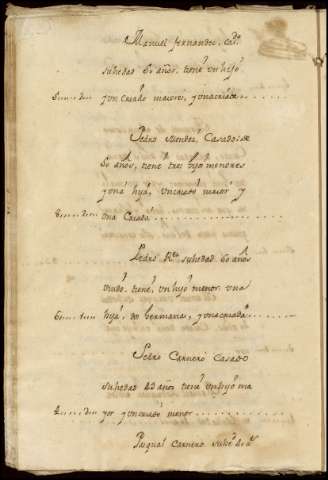 Manuel fernandez, Cad.º
su hedad 60 años, tiene Un hijo
y Un Criado maiores, y Una criada
Pedro Mendez Casado de
60 años, tiene tres hijos menores
y Una hija, Un criado maior y
Una Criada
Pedro su hedad 60 años
Viudo, tiene, Un hijo menor Una
hija, dos hermanas, y Una criada
Pedro Carnero Casado
su hedad 42 años tiene Un hijo ma
yor y Un criado menor
Pasqual Carnero